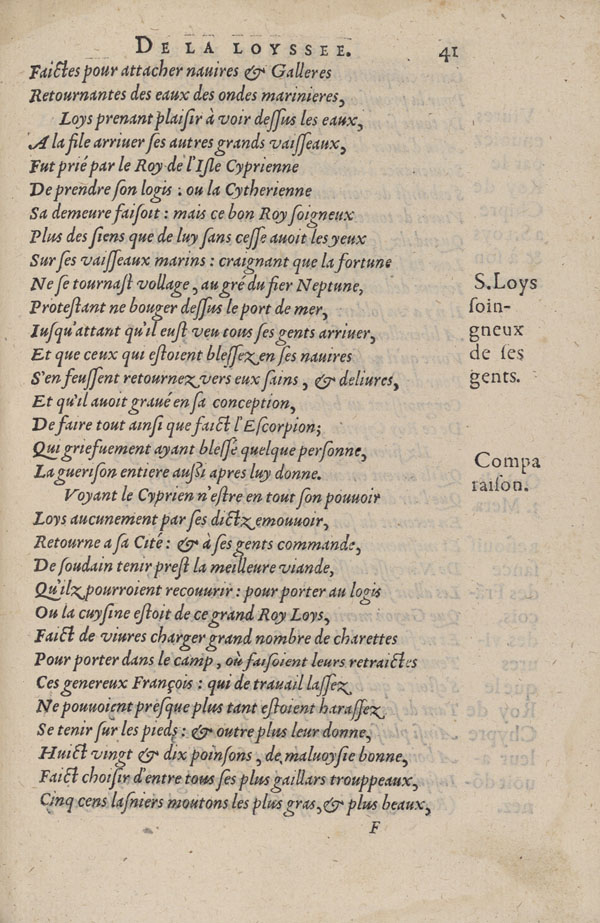 DE LA LOYSSEE. 41
Faictes pour attacher nauires & Galleres
Retournantes des eaux des ondes marinieres,
Loys prenant plaisir à voir dessus les eaux,
A la file arriuer ses autres grands vaisseaux,
Fut prié par le Roy de l'Isle Cyprienne
De prendre son logis : ou la Cytherienne
Sa demeure faisoit : mais ce bon Roy soigneux
Plus des siens que de luy sans cesse auoit les yeux
Sur ses vaisseaux marins : craignant que la fortune
Ne se tournast vollage, au gré du fier Neptune,
Protestant ne bouger dessus le port de mer,
Iusqu'attant qu'il eust veu tous ses gents arriuer,
Et que ceux qui estoient blessez en ses nauires
S'en feussent retournez vers eux sains, & deliures,
Et qu'il auoit graué en sa conception,
De faire tout ainsi que faict l'Escorpion;
Qui griefuement ayant blessé quelque personne,
La guerison entiere aussi apres luy donne.
Voyant le Cyprien n'estre en tout son pouuoir
Loys aucunement par ses dictz emouuoir,
Retourne a sa Cité : & à ses gents commande,
De soudain tenir prest la meilleure viande,
Qu'ilz pourroient recouurir : pour porter au logis
Ou la cuysine estoit de ce grand Roy Loys,
Faict de viures charger grand nombre de charettes
Pour porter dans le camp, où faisoient leurs retraictes
Ces genereux François : qui de trauail lassez
Ne pouuoient presque plus tant estoient harassez
Se tenir sur les pieds : & outre plus leur donne,
Huict vingt & dix poinsons, de maluoysie bonne,
Faict choisir d'entre tous ses plus gaillars trouppeaux,
Cinq cens lasniers moutons les plus gras, & plus beaux,
F
S. Loys
soin-
gneux
de ses
gents.
Compa
raison.